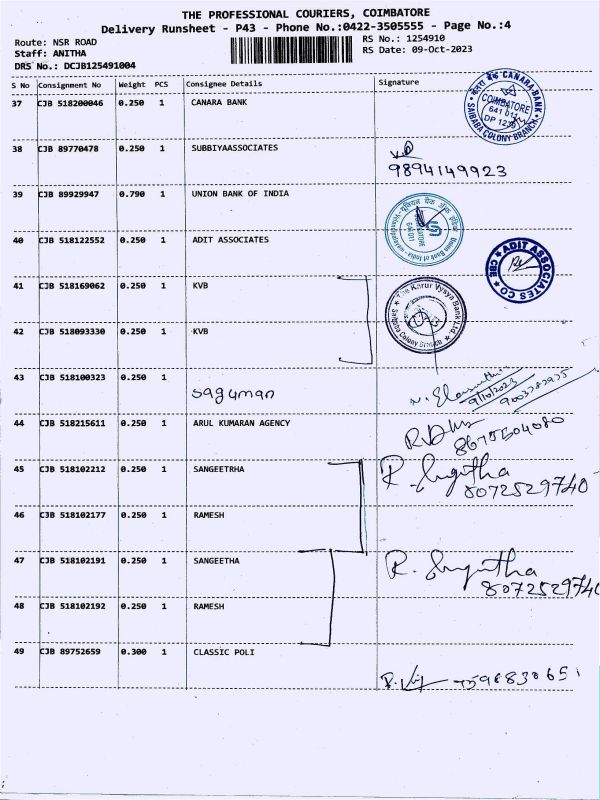 THE PROFESSIONAL COURIERS, COIMBATORE
Delivery Runsheet - P43 - Phone No.:0422-3505555 - Page No.:4
Route: NSR ROAD
Staff: ANITHA
DRS No.: DCJB125491004
RS No.: 1254910
RS Date: 09-Oct-2023
S No Consignment No Weight PCS Consignee Details Signature
37 CJB 518200046 0.250 1 CANARA BANK
CANARA BANK COIMBATORE 641 011 SAIBABA COLONY BRANCH
38 CJB 89770478 0.250 1 SUBBIYAASSOCIATES
9894149923
39 CJB 89929947 0.790 1 UNION BANK OF INDIA
Union Bank of India
40 CJB 518122552 0.250 1 ADIT ASSOCIATES
ADIT ASSOCIATES CO CBE
41 CJB 518169062 0.250 1 KVB
The Karur Vysya Bank Ltd. Saibaba Colony Branch
42 CJB 518093330 0.250 1 KVB
43 CJB 518100323 0.250 1
saguman
9/10/2023
44 CJB 518215611 0.250 1 ARUL KUMARAN AGENCY
8675604080
45 CJB 518102212 0.250 1 SANGEETRHA
8072529740
46 CJB 518102177 0.250 1 RAMESH
47 CJB 518102191 0.250 1 SANGEETHA
8072529740
48 CJB 518102192 0.250 1 RAMESH
49 CJB 89752659 0.300 1 CLASSIC POLI